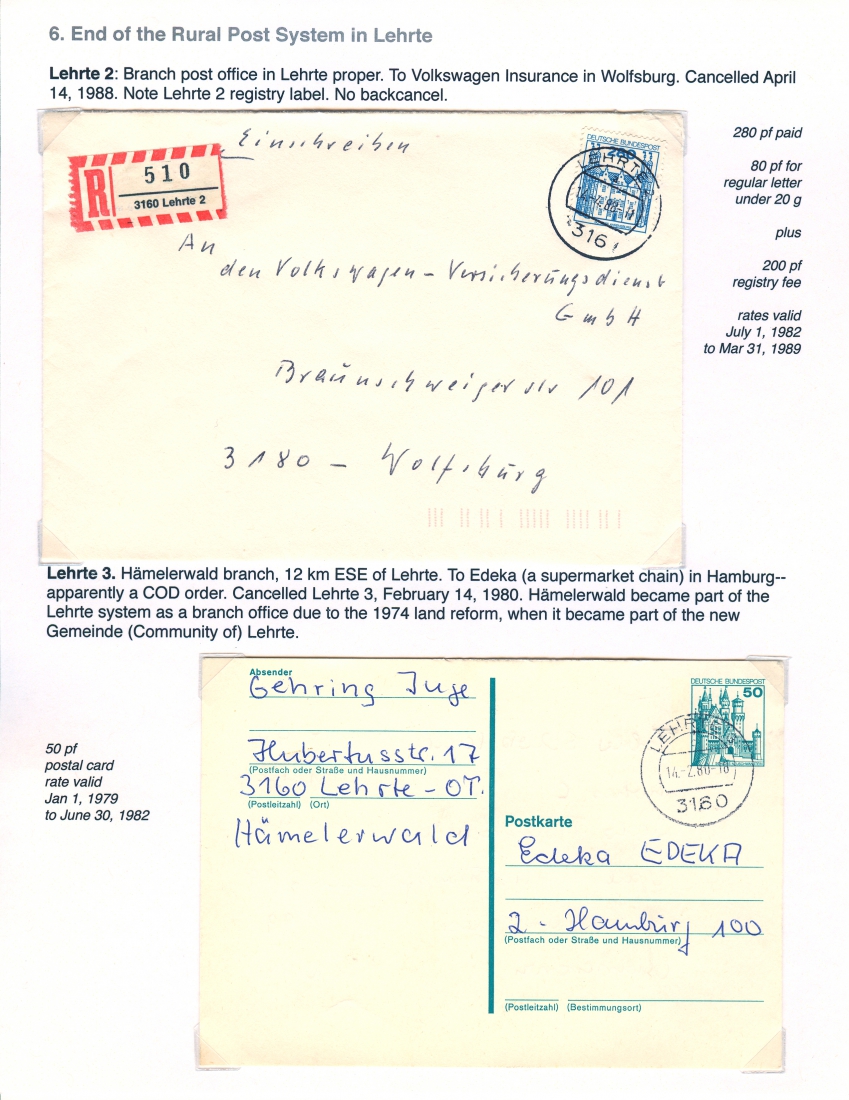 6. End of the Rural Post System in Lehrte
Lehrte 2: Branch post office in Lehrte proper. To Volkswagen Insurance in Wolfsburg. Cancelled April
14, 1988. Note Lehrte 2 registry label. No backcancel.
Einschreiben
R
510
3160 Lehrte 2
DEUTSCHE BUNDESPOST
280
LEHRTE
316
An
den Volkswagen-Versicherungsdienst
GmbH
Braunschweiger str 101
3180 - Wolfsburg
280 pf paid
80 pf for
regular letter
under 20 g
plus
200 pf
registry fee
rates valid
July 1, 1982
to Mar 31, 1989
Lehrte 3. Hämelerwald branch, 12 km ESE of Lehrte. To Edeka (a supermarket chain) in Hamburg--
apparently a COD order. Cancelled Lehrte 3, February 14, 1980. Hämelerwald became part of the
Lehrte system as a branch office due to the 1974 land reform, when it became part of the new
Gemeinde (Community of) Lehrte.
50 pf
postal card
rate valid
Jan 1, 1979
to June 30, 1982
Absender
Gehring Inge
Hubertusstr. 17
(Postfach oder Straße und Hausnummer)
3160 Lehrte - OT.
(Postleitzahl) (Ort)
Hämelerwald
DEUTSCHE BUNDESPOST
50
LEHRTE
14.-2.80-18
3160
Postkarte
Edeka EDEKA
2 - Hamburg 100
(Postfach oder Straße und Hausnummer)
(Postleitzahl) (Bestimmungsort)